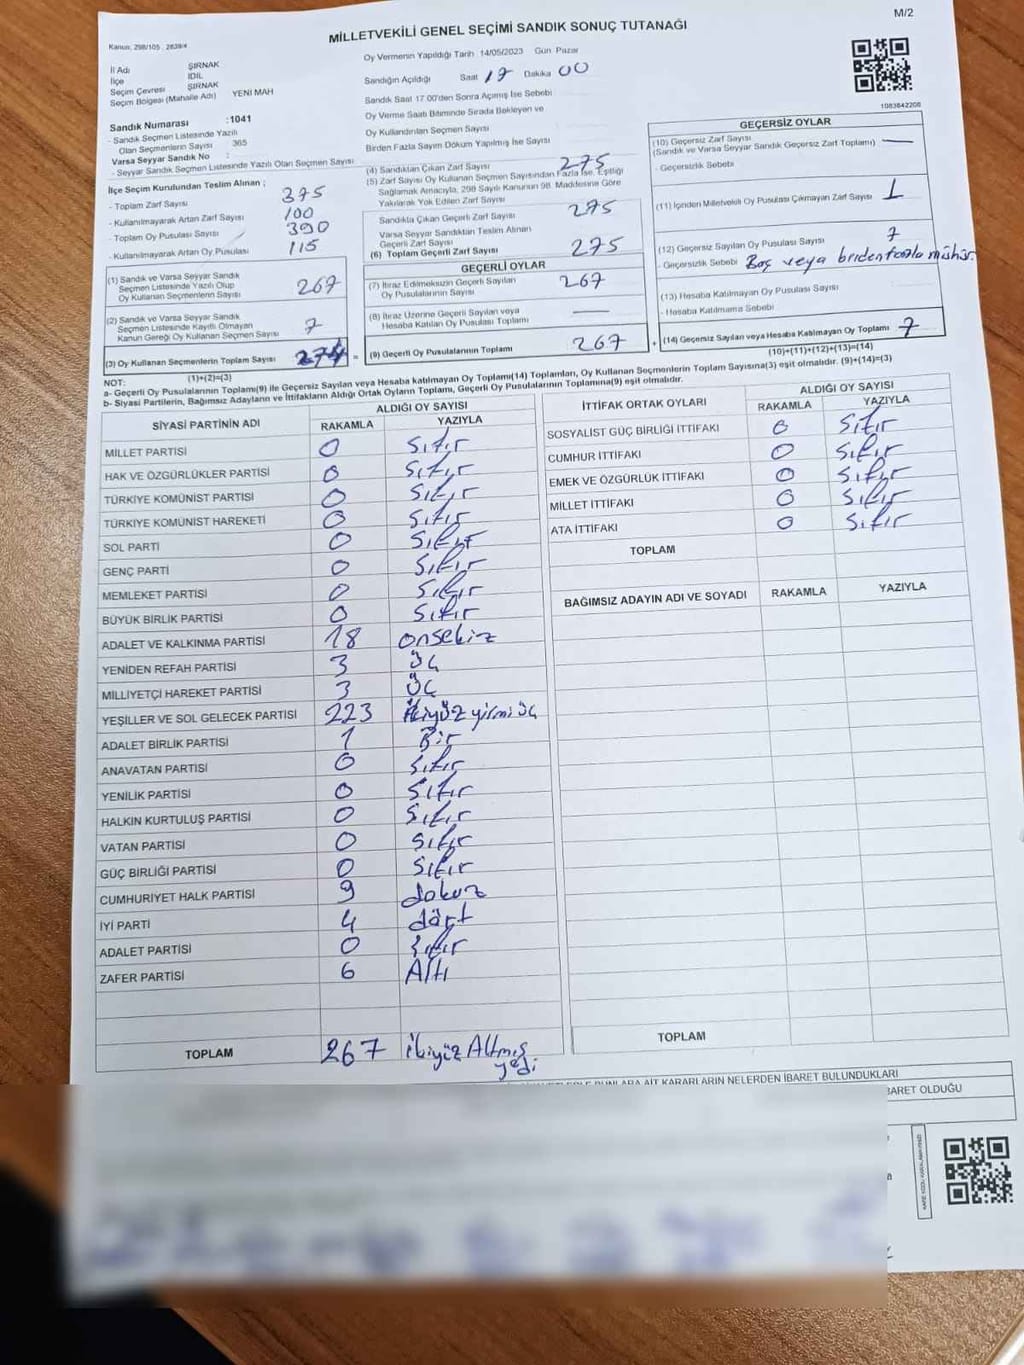 M/2
MİLLETVEKİLİ GENEL SEÇİMİ SANDIK SONUÇ TUTANAĞI
Kanun: 298/105 , 2839/4
İl Adı ŞIRNAK
İlçe İDİL
Seçim Çevresi ŞIRNAK
Seçim Bölgesi (Mahalle Adı) YENİ MAH
Sandık Numarası :1041
- Sandık Seçmen Listesinde Yazılı
Olan Seçmenlerin Sayısı 365
Varsa Seyyar Sandık No :
- Seyyar Sandık Seçmen Listesinde Yazılı Olan Seçmen Sayısı
İlçe Seçim Kurulundan Teslim Alınan ;
- Toplam Zarf Sayısı 375
- Kullanılmayarak Artan Zarf Sayısı 100
- Toplam Oy Pusulası Sayısı 390
- Kullanılmayarak Artan Oy Pusulası 115
(1) Sandık ve Varsa Seyyar Sandık
Seçmen Listesinde Yazılı Olup
Oy Kullanan Seçmenlerin Sayısı 267
(2) Sandık ve Varsa Seyyar Sandık
Seçmen Listesinde Kayıtlı Olmayan
Kanun Gereği Oy Kullanan Seçmen Sayısı 7
(3) Oy Kullanan Seçmenlerin Toplam Sayısı 274 =
(1)+(2)=(3)
Oy Vermenin Yapıldığı Tarih 14/05/2023 Gün Pazar
Sandığın Açıldığı Saat 17 Dakika 00
Sandık Saat 17:00'den Sonra Açılmış İse Sebebi
Oy Verme Saati Bitiminde Sırada Bekleyen ve
Oy Kullandırılan Seçmen Sayısı
Birden Fazla Sayım Döküm Yapılmış İse Sayısı
(4) Sandıktan Çıkan Zarf Sayısı 275
(5) Zarf Sayısı Oy Kullanan Seçmen Sayısından Fazla İse, Eşitliği
Sağlamak Amacıyla, 298 Sayılı Kanunun 98. Maddesine Göre
Yakılarak Yok Edilen Zarf Sayısı
Sandıkta Çıkan Geçerli Zarf Sayısı 275
Varsa Seyyar Sandıktan Teslim Alınan
Geçerli Zarf Sayısı
(6) Toplam Geçerli Zarf Sayısı 275
GEÇERLİ OYLAR
(7) İtiraz Edilmeksizin Geçerli Sayılan
Oy Pusulalarının Sayısı 267
(8) İtiraz Üzerine Geçerli Sayılan veya
Hesaba Katılan Oy Pusulası Toplamı —
(9) Geçerli Oy Pusulalarının Toplamı 267 +
1083642206
GEÇERSİZ OYLAR
(10) Geçersiz Zarf Sayısı
(Sandık ve Varsa Seyyar Sandık Geçersiz Zarf Toplamı) —
- Geçersizlik Sebebi
(11) İçinden Milletvekili Oy Pusulası Çıkmayan Zarf Sayısı 1
(12) Geçersiz Sayılan Oy Pusulası Sayısı 7
- Geçersizlik Sebebi Boş veya birden fazla mühür.
(13) Hesaba Katılmayan Oy Pusulası Sayısı
- Hesaba Katılmama Sebebi
(14) Geçersiz Sayılan veya Hesaba Katılmayan Oy Toplamı 7
(10)+(11)+(12)+(13)=(14)
NOT:
a- Geçerli Oy Pusulalarının Toplamı(9) ile Geçersiz Sayılan veya Hesaba katılmayan Oy Toplamı(14) Toplamları, Oy Kullanan Seçmenlerin Toplam Sayısına(3) eşit olmalıdır. (9)+(14)=(3)
b- Siyasi Partilerin, Bağımsız Adayların ve İttifakların Aldığı Ortak Oyların Toplamı, Geçerli Oy Pusulalarının Toplamına(9) eşit olmalıdır.
SİYASİ PARTİNİN ADI
ALDIĞI OY SAYISI
RAKAMLA YAZIYLA
MİLLET PARTİSİ 0 Sıfır
HAK VE ÖZGÜRLÜKLER PARTİSİ 0 Sıfır
TÜRKİYE KOMÜNİST PARTİSİ 0 Sıfır
TÜRKİYE KOMÜNİST HAREKETİ 0 Sıfır
SOL PARTİ 0 Sıfır
GENÇ PARTİ 0 Sıfır
MEMLEKET PARTİSİ 0 Sıfır
BÜYÜK BİRLİK PARTİSİ 0 Sıfır
ADALET VE KALKINMA PARTİSİ 18 onsekiz
YENİDEN REFAH PARTİSİ 3 üç
MİLLİYETÇİ HAREKET PARTİSİ 3 üç
YEŞİLLER VE SOL GELECEK PARTİSİ 223 ikiyüz yirmi üç
ADALET BİRLİK PARTİSİ 1 Bir
ANAVATAN PARTİSİ 0 Sıfır
YENİLİK PARTİSİ 0 Sıfır
HALKIN KURTULUŞ PARTİSİ 0 Sıfır
VATAN PARTİSİ 0 Sıfır
GÜÇ BİRLİĞİ PARTİSİ 0 Sıfır
CUMHURİYET HALK PARTİSİ 9 dokuz
İYİ PARTİ 4 dört
ADALET PARTİSİ 0 Sıfır
ZAFER PARTİSİ 6 Altı
TOPLAM 267 ikiyüz Altmış
yedi
İTTİFAK ORTAK OYLARI
ALDIĞI OY SAYISI
RAKAMLA YAZIYLA
SOSYALİST GÜÇ BİRLİĞİ İTTİFAKI 0 Sıfır
CUMHUR İTTİFAKI 0 Sıfır
EMEK VE ÖZGÜRLÜK İTTİFAKI 0 Sıfır
MİLLET İTTİFAKI 0 Sıfır
ATA İTTİFAKI 0 Sıfır
TOPLAM
BAĞIMSIZ ADAYIN ADI VE SOYADI RAKAMLA YAZIYLA
TOPLAM
BUNLARA AİT KARARLARIN NELERDEN İBARET BULUNDUKLARI
BARET OLDUĞU